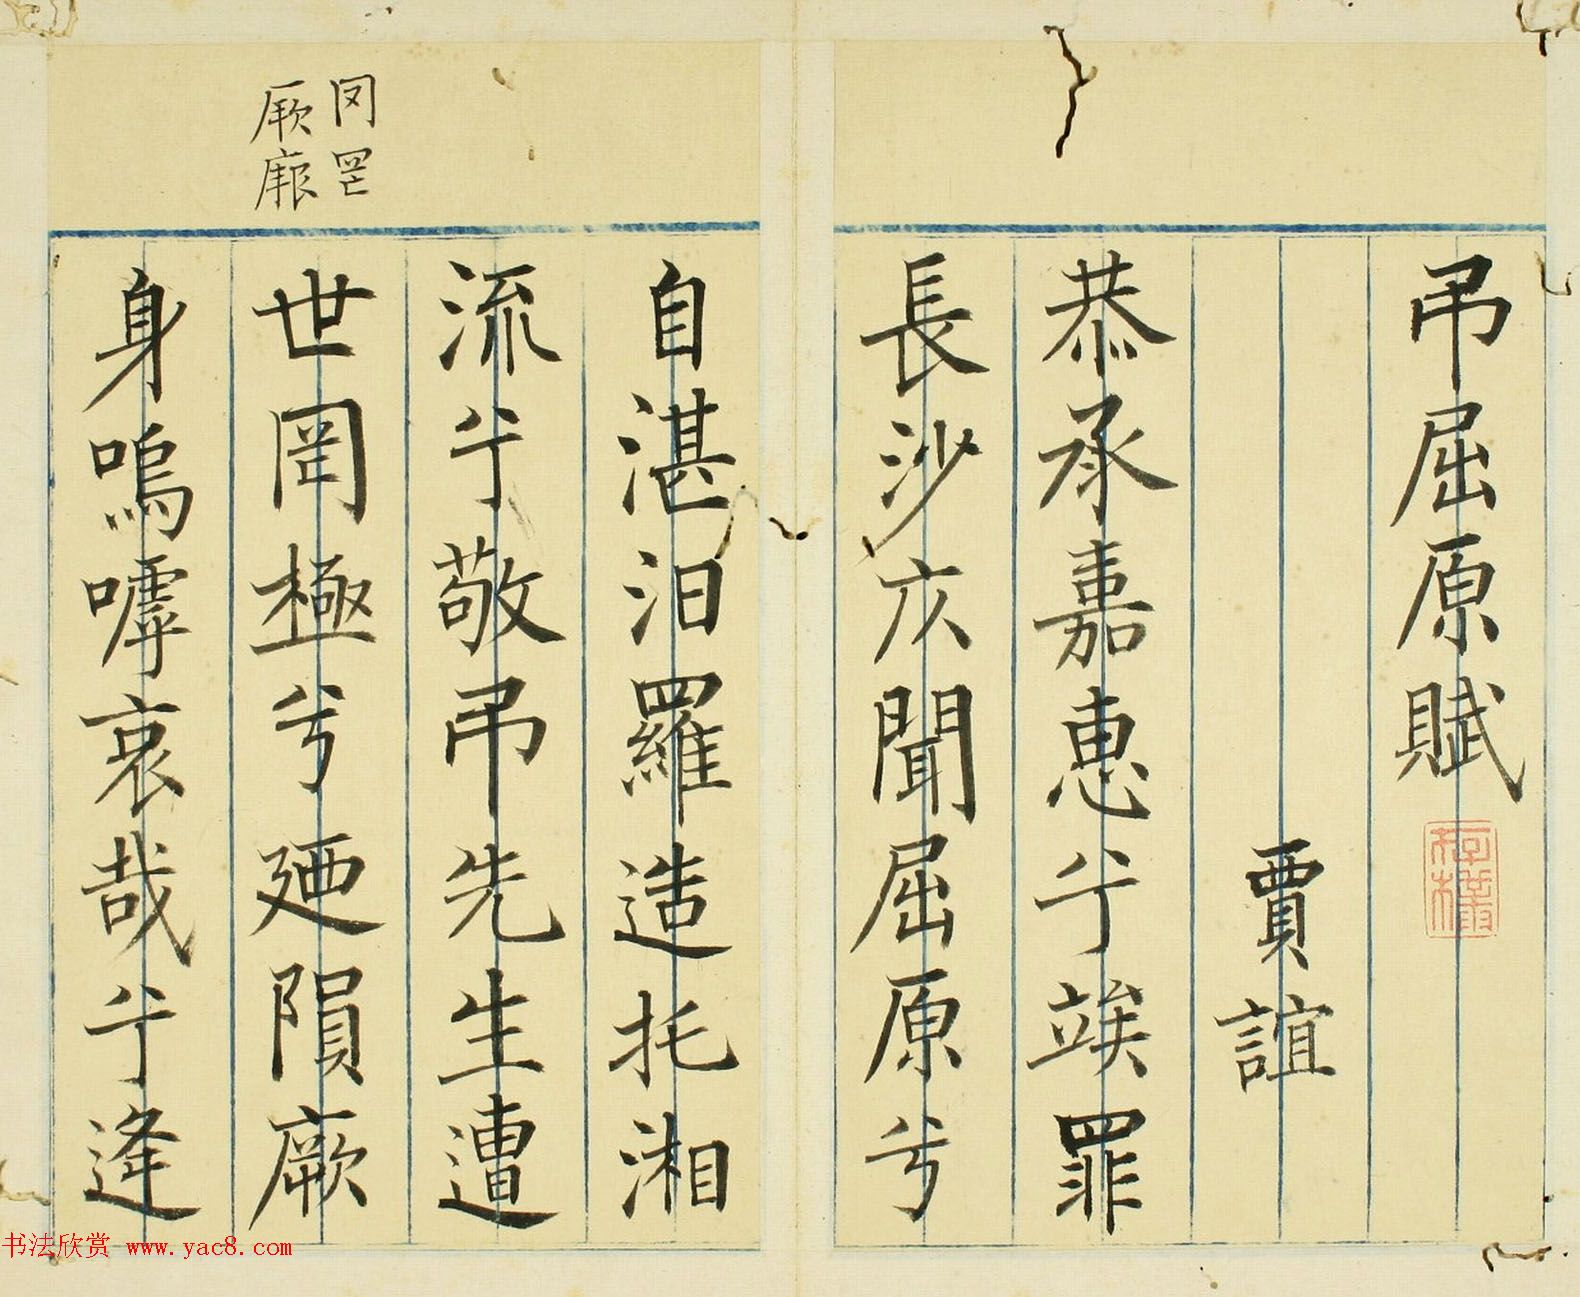 弔屈原賦
賈誼
恭承嘉惠兮竢罪
長沙仄聞屈原兮
自湛汨羅造托湘
流兮敬弔先生遭
世罔極兮廼隕厥
身嗚嘑哀哉兮逢
书法欣赏 www.yac8.com